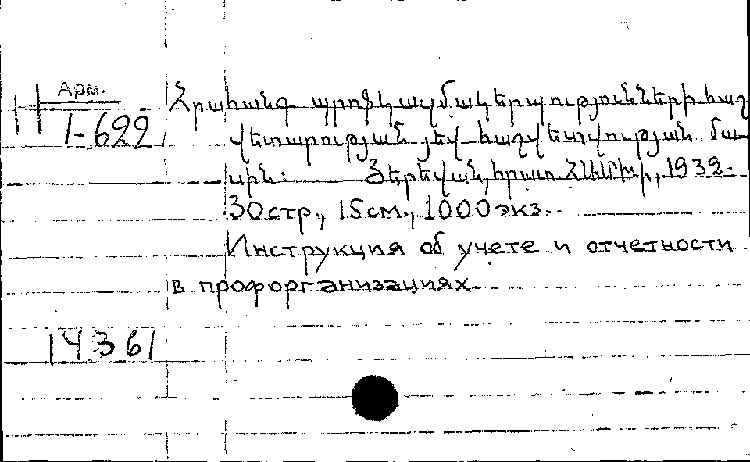 Арм.
1-622
Հրահանգ պրոֆկազմակերպությունների հաշ
վետարության յեվ հաշվետվության մա
սին: Յերեվան, հրատ ՀԱՄԽԽ, 1932.
30стр., 15см., 1000экз.
Инструкция об учете и отчетности
в профорганизациях.
14361